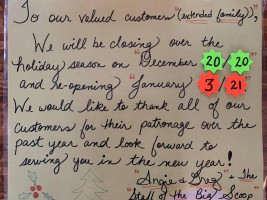 To our valued customers "(extended family)",
We will be closing over the
holiday season on "December 20/20"
and re-opening "January 3/21"
We would like to thank all of our
customers for their patronage over the
past year and look forward to
serving you in the new year!
"Angie & Greg" & the
"Staff of the Big Scoop"